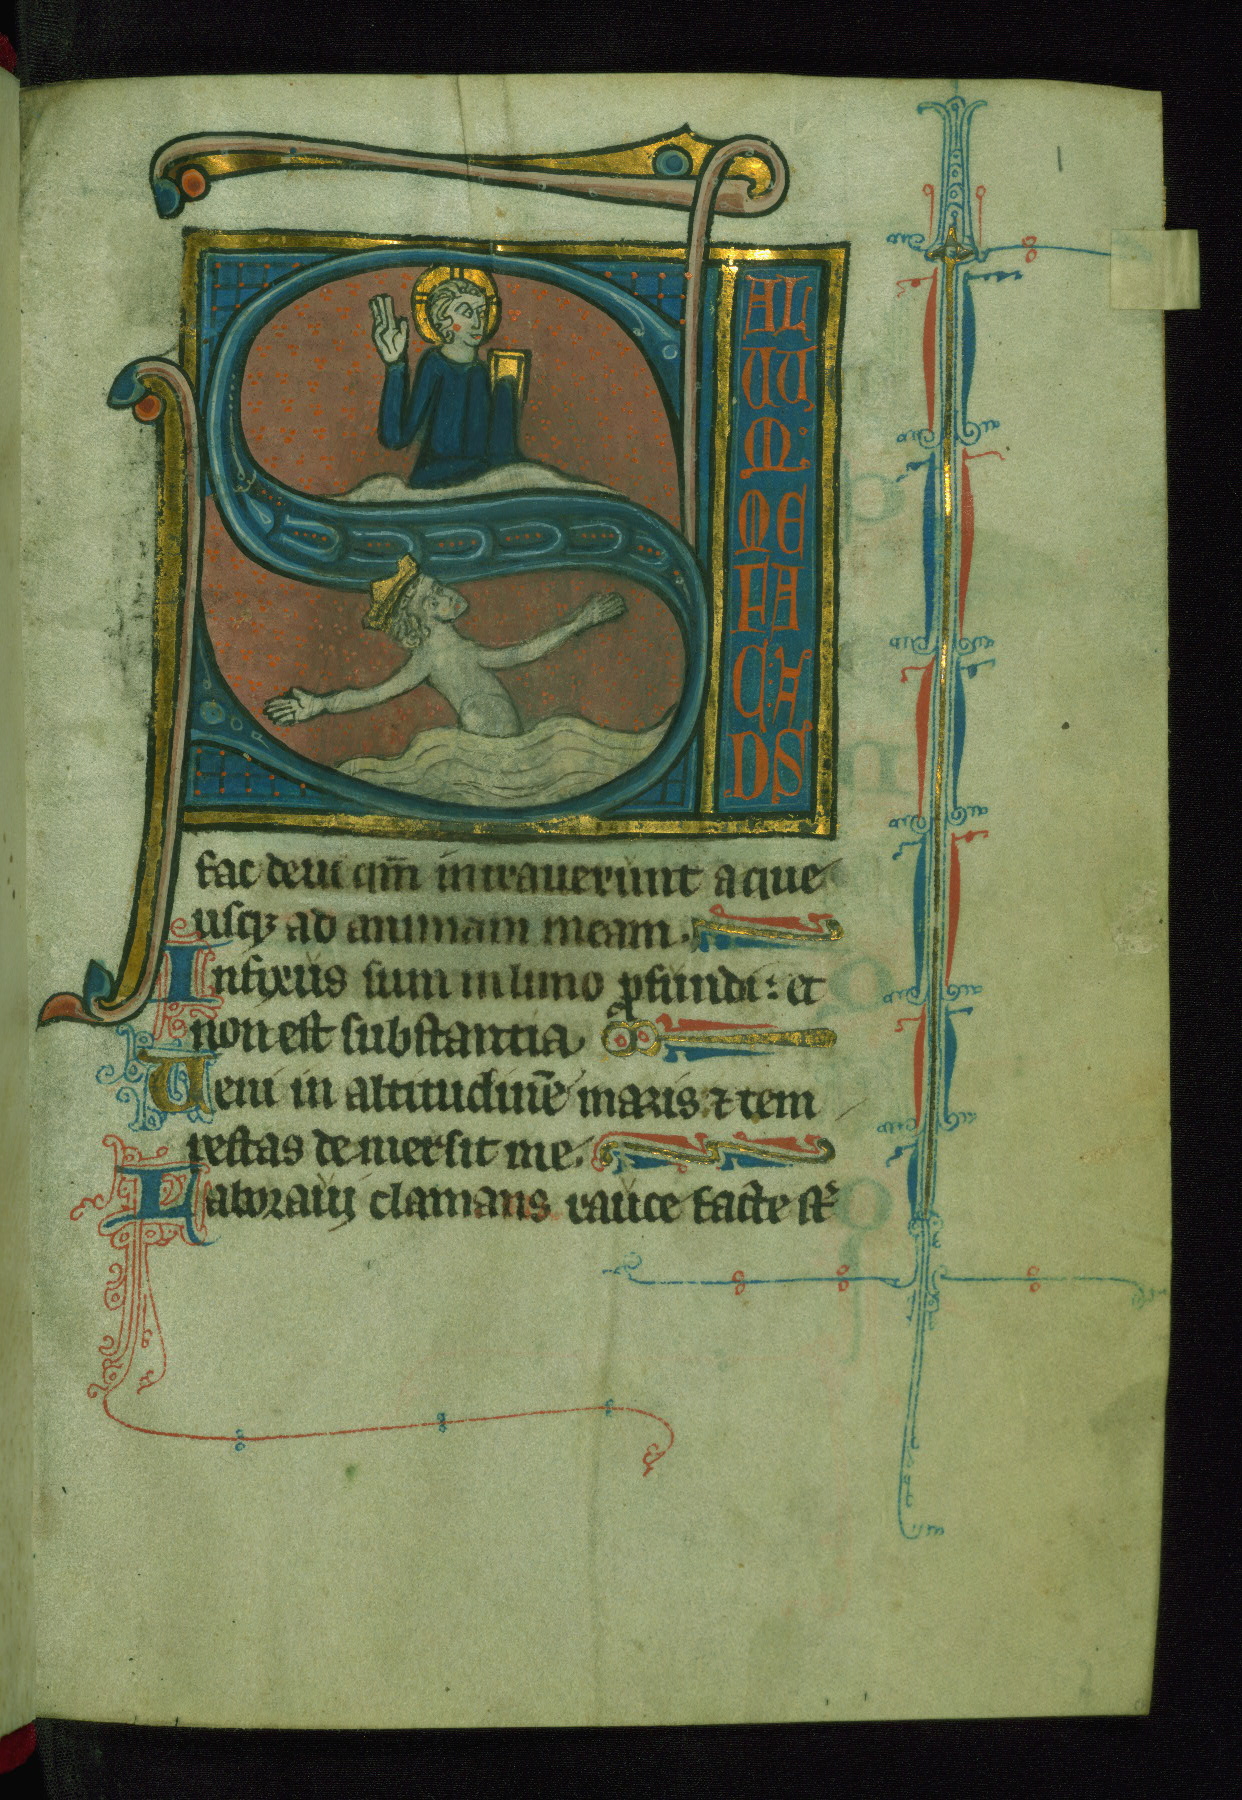 S AL
UU
M·
ME
FA
C·A
DS
fac deu qm̄ intrauerunt aque
usqꝫ ad animam meam.
Infixus sum in limo ꝓfundi: et
non est substantia
Ueni in altitudinē maris ⁊ tem
pestas demersit me.
Laborauy clamans rauce facte st̄